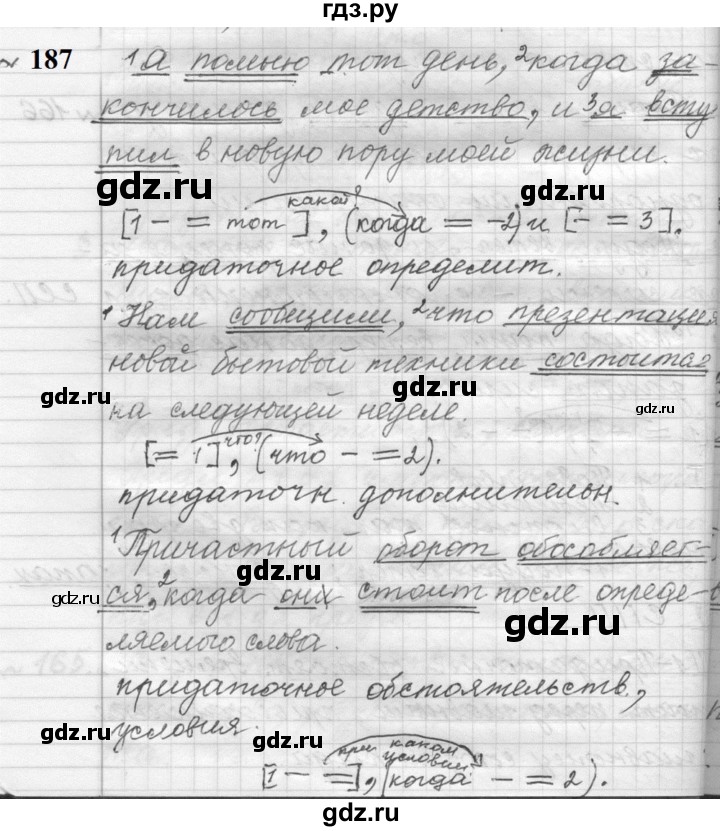 гдз.ру
№ 187 1Я помню тот день, 2когда за-
кончилось мое детство, и 3я всту
пил в новую пору моей жизни.
gdz.ru gdz.ru
какой?
[1 – = тот], (когда = – 2) и [– = 3].
придаточное определит.
1Нам сообщили, 2что презентация
новой бытовой техники состоится
gdz.ru gdz.ru gdz.ru
на следующей неделе.
что?
[= 1], (что – = 2).
придаточн. дополнительн.
1Причастный оборот обособляет-
gdz.ru
ся, 2когда они стоит после опреде-
gdz.ru gdz.ru
ляемого слова.
придаточное обстоятельств.,
условия.
gdz.ru
при каком
условии
[1 – =], (когда – = 2).
gdz.ru gdz.ru